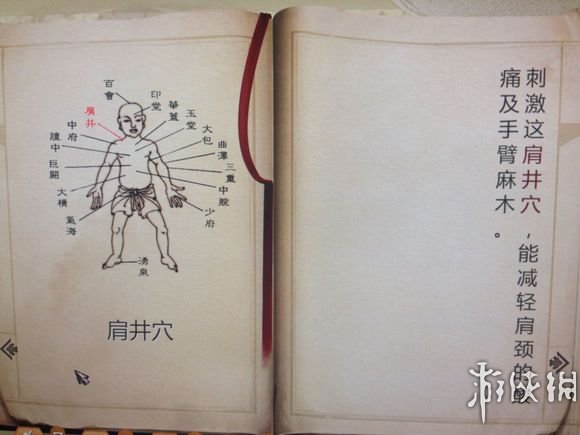 百會
印堂
華蓋
玉堂
大包
曲澤
三重
中脘
少府
湧泉
肩井
中府
膻中
巨闕
大橫
氣海
肩井穴
刺激这肩井穴,能减轻肩颈的酸
痛及手臂麻木。
游侠网